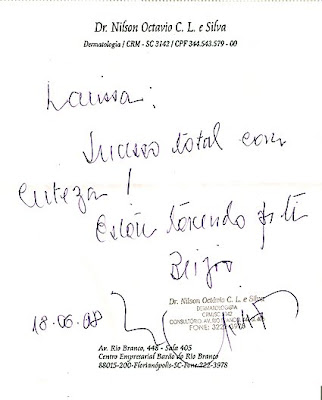 Dr. Nilson Octavio C. L. e Silva
Dermatologia / CRM - SC 3142 / CPF 344.543.579 - 00
Larissa:
Sucesso total com
certeza!
Estou torcendo p/ ti
Beijos
Dr. Nilson Octávio C. L. e Silva
DERMATOLOGISTA
CRM/SC 3142
FONE: 222-3978
18.06.98
Av. Rio Branco, 448 - Sala 405
Centro Empresarial Barão do Rio Branco
88015-200-Florianópolis-SC-Fone:222-3978